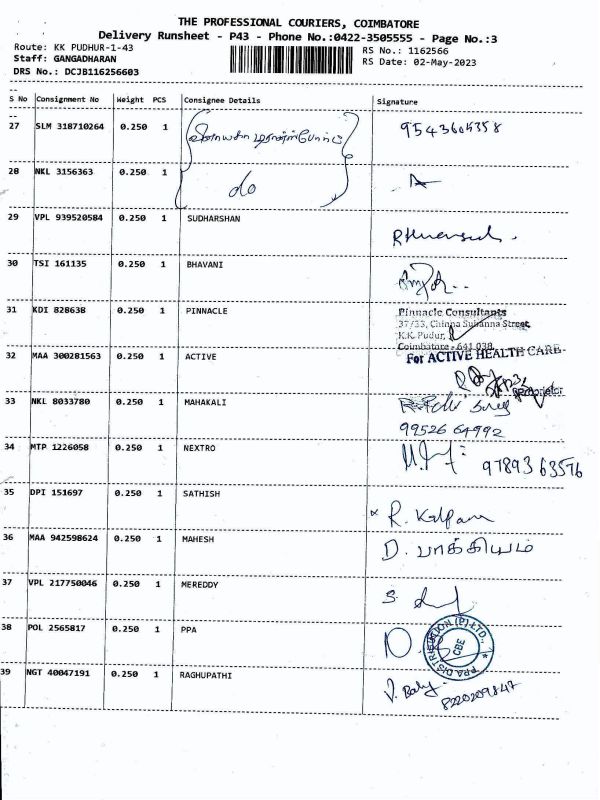 THE PROFESSIONAL COURIERS, COIMBATORE
Delivery Runsheet - P43 - Phone No.:0422-3505555 - Page No.:3
Route: KK PUDHUR-1-43 RS No.: 1162566
Staff: GANGADHARAN RS Date: 02-May-2023
DRS No.: DCJB116256603
S No Consignment No Weight PCS Consignee Details Signature
27 SLM 318710264 0.250 1 9543605358
28 NKL 3156363 0.250 1 do
29 VPL 939520584 0.250 1 SUDHARSHAN
30 TSI 161135 0.250 1 BHAVANI
31 KDI 828638 0.250 1 PINNACLE Pinnacle Consultants
37/33, Chinna Subanna Street,
K.K. Pudur,
Coimbatore - 641 038.
32 MAA 300281563 0.250 1 ACTIVE For ACTIVE HEALTH CARE
Proprietor
33 NKL 8033780 0.250 1 MAHAKALI
99526 64992
34 MTP 1226058 0.250 1 NEXTRO 9789363576
35 DPI 151697 0.250 1 SATHISH R. Kalpana
36 MAA 942598624 0.250 1 MAHESH D. பாக்கியம்
37 VPL 217750046 0.250 1 MEREDDY S.
38 POL 2565817 0.250 1 PPA PPA DISTRIBUTION (P) LTD., * CBE
39 NGT 40047191 0.250 1 RAGHUPATHI V. Baby
8220209847